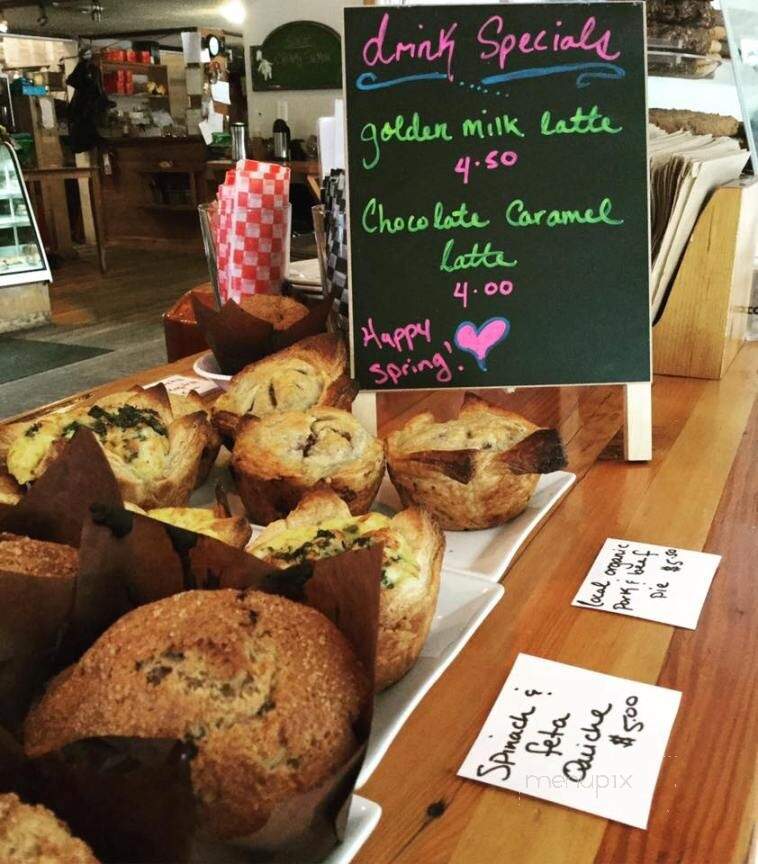 drink Specials
golden milk latte
4.50
Chocolate Caramel
Latte
4.00
Happy
Spring!
Local organic
Pork & beef
pie $5.50
Spinach &
feta
Quiche
$5.00
menupix